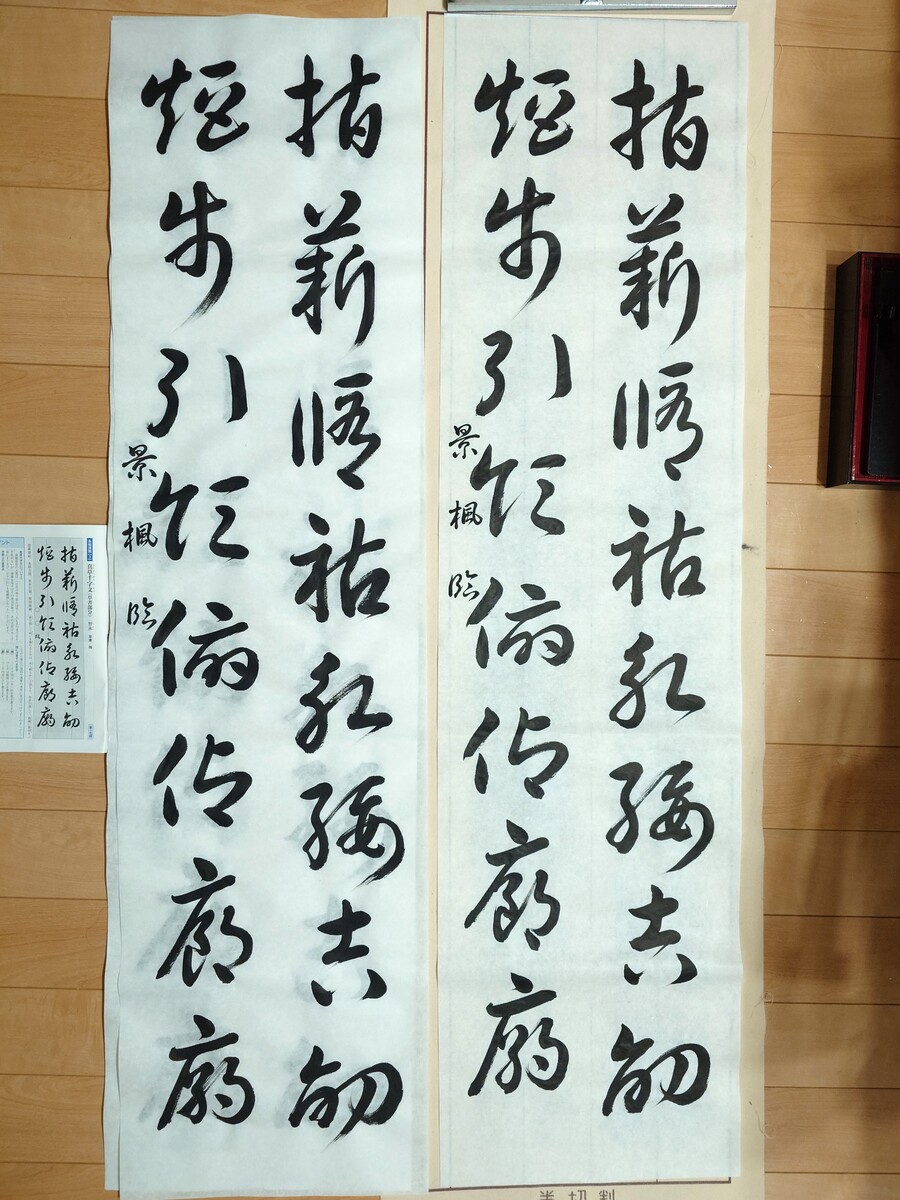 指薪修祜永綏吉劭
矩步引領俯仰廊廟
景楓臨
指薪修祜永綏吉劭
矩步引領俯仰廊廟
景楓臨
真草千字文
指薪修祜永綏吉劭
矩步引領俯仰廊廟
半切判